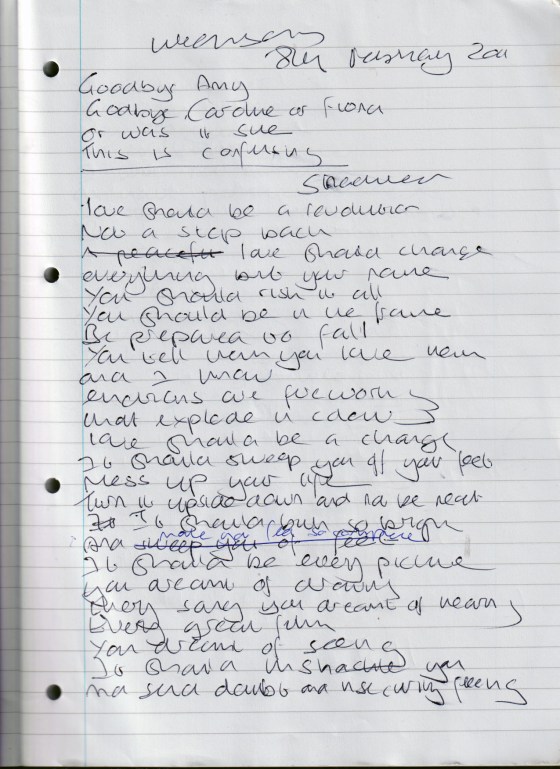 Wednesday
8th February 2011
Goodbye Amy
Goodbye Caroline or Fiona
or was it sue
This is confusing
love should be a revolution
Not a step back
A peaceful love should change
everything but your name
You should risk it all
You should be in the frame
Be prepared to fall
You tell them you love them
and I know
endings are fireworks
that explode in colours
love should be a change
It should sweep you off your feet
Mess up your life
Turn it upside down and not be neat
It It should burn so bright
make you feel so complete
And sweep you of feet
It should be every picture
you dream of drawing
Every song you dreamt of hearing
Every great film
You dream of seeing
It should unshackle you